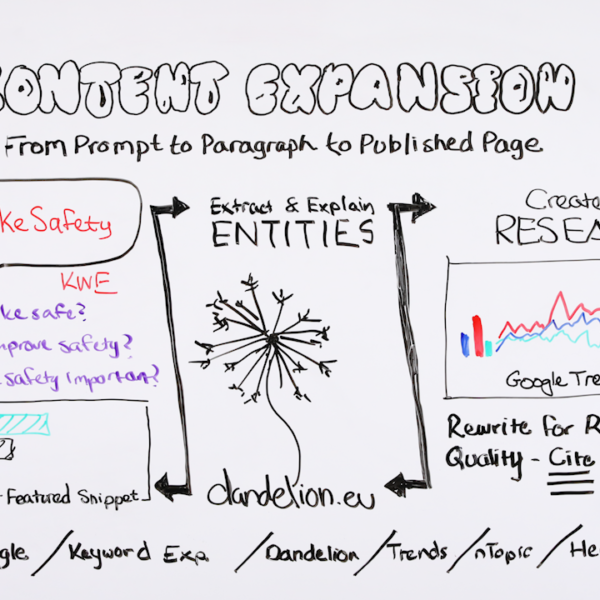 CONTENT EXPANSION
From Prompt to Paragraph to Published Page
ke Safety
KWE
ke safe?
mprove safety?
safety important?
Featured Snippet
Extract & Explain
ENTITIES
dandelion.eu
Create
RESEA
Google Tre
Rewrite for R
Quality - Cite
gle / Keyword Exp / Dandelion / Trends / nTopic / He